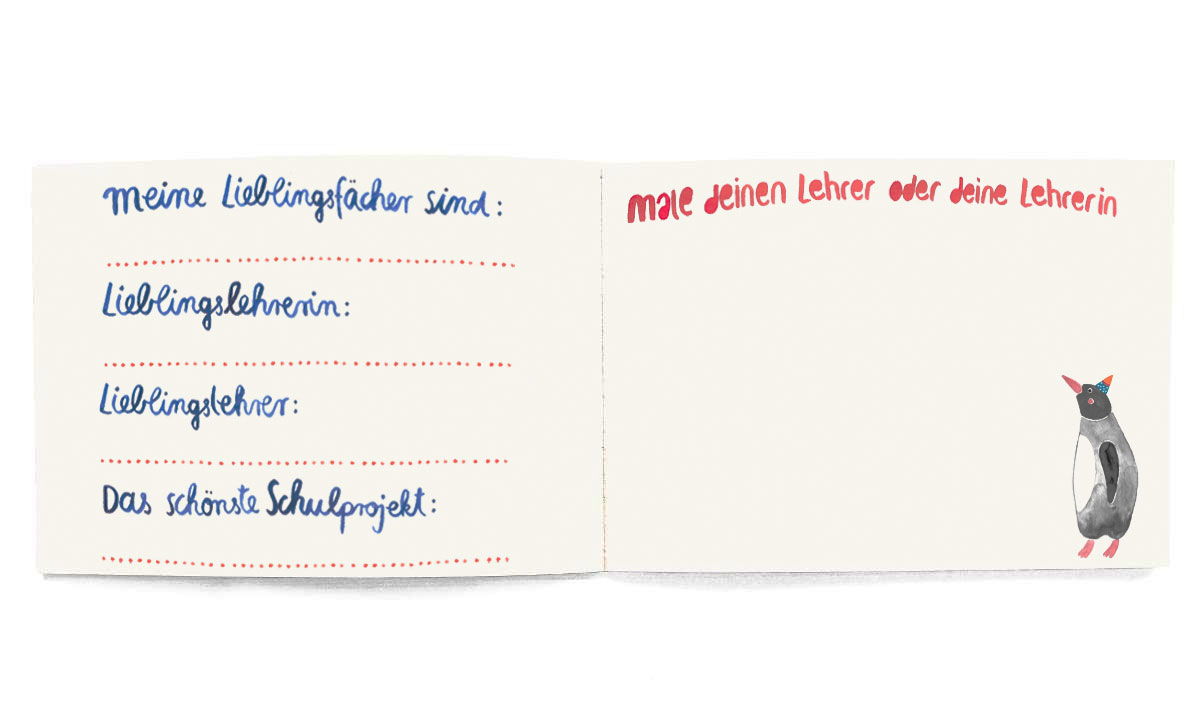 meine Lieblingsfächer sind:
Lieblingslehrerin:
Lieblingslehrer:
Das schönste Schulprojekt:
male deinen Lehrer oder deine Lehrerin